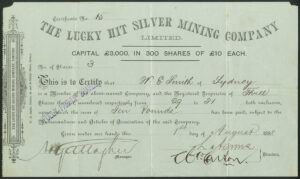 Certificate No. 16
THE LUCKY HIT SILVER MINING COMPANY
LIMITED.
CAPITAL £3,000, IN 300 SHARES OF £10 EACH.
No. of Shares 3
This is to Certify that W. E. Smith of Sydney
is a Member of the abovenamed Company, and the Registered Proprietor of Three
Shares numbered respectively from 29 to 31 both inclusive,
the sum of Ten Pounds has been paid, subject to the
Memorandum and Articles of Association of the said Company.
Given under our hands this 1st day of August
Manager.
Directors.